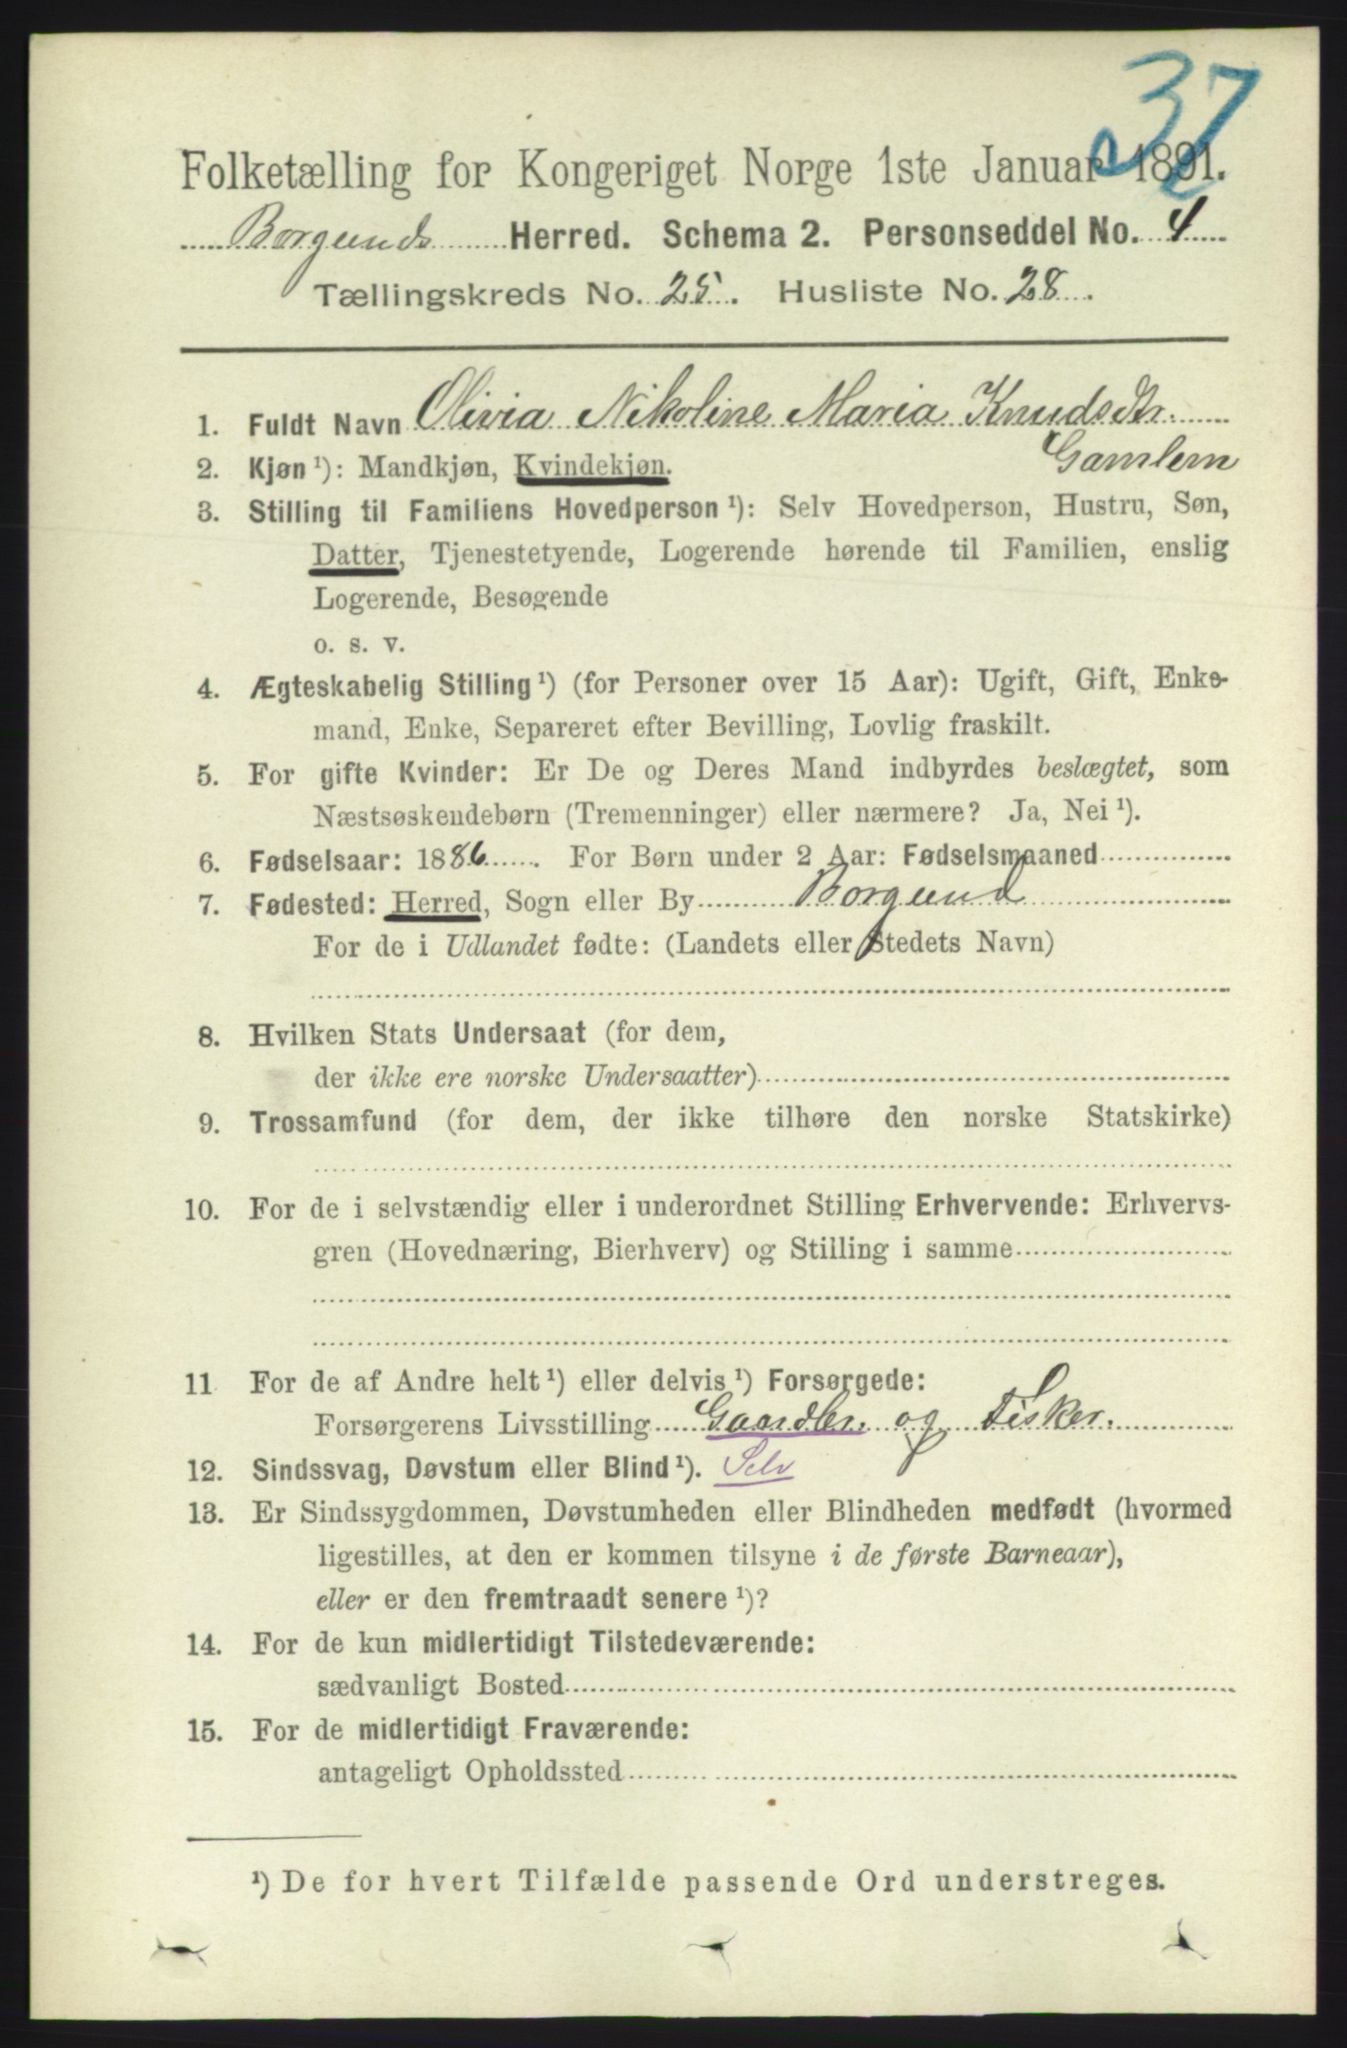 37
Folketælling for Kongeriget Norge 1ste Januar 1891.
Borgunds Herred. Schema 2. Personseddel No. 4
Tællingskreds No. 25. Husliste No. 28.
1. Fuldt Navn Olivia Nikoline Maria Knudsdtr.
Gamlem
2. Kjøn ¹): Mandkjøn, Kvindekjøn.
3. Stilling til Familiens Hovedperson ¹): Selv Hovedperson, Hustru, Søn,
Datter, Tjenestetyende, Logerende hørende til Familien, enslig
Logerende, Besøgende
o. s. v.
4. Ægteskabelig Stilling ¹) (for Personer over 15 Aar): Ugift, Gift, Enke-
mand, Enke, Separeret efter Bevilling, Lovlig fraskilt.
5. For gifte Kvinder: Er De og Deres Mand indbyrdes beslægtet, som
Næstsøskendebørn (Tremenninger) eller nærmere? Ja, Nei ¹).
6. Fødselsaar: 1886. For Børn under 2 Aar: Fødselsmaaned
7. Fødested: Herred, Sogn eller By Borgund
For de i Udlandet fødte: (Landets eller Stedets Navn)
8. Hvilken Stats Undersaat (for dem,
der ikke ere norske Undersaatter)
9. Trossamfund (for dem, der ikke tilhøre den norske Statskirke)
10. For de i selvstændig eller i underordnet Stilling Erhvervende: Erhvervs-
gren (Hovednæring, Bierhverv) og Stilling i samme
11 For de af Andre helt ¹) eller delvis ¹) Forsørgede:
Forsørgerens Livsstilling Gaardbr. og Fisker.
12. Sindssvag, Døvstum eller Blind ¹). Selv
13. Er Sindssygdommen, Døvstumheden eller Blindheden medfødt (hvormed
ligestilles, at den er kommen tilsyne i de første Barneaar),
eller er den fremtraadt senere ¹)?
14. For de kun midlertidigt Tilstedeværende:
sædvanligt Bosted
15. For de midlertidigt Fraværende:
antageligt Opholdssted
¹) De for hvert Tilfælde passende Ord understreges.